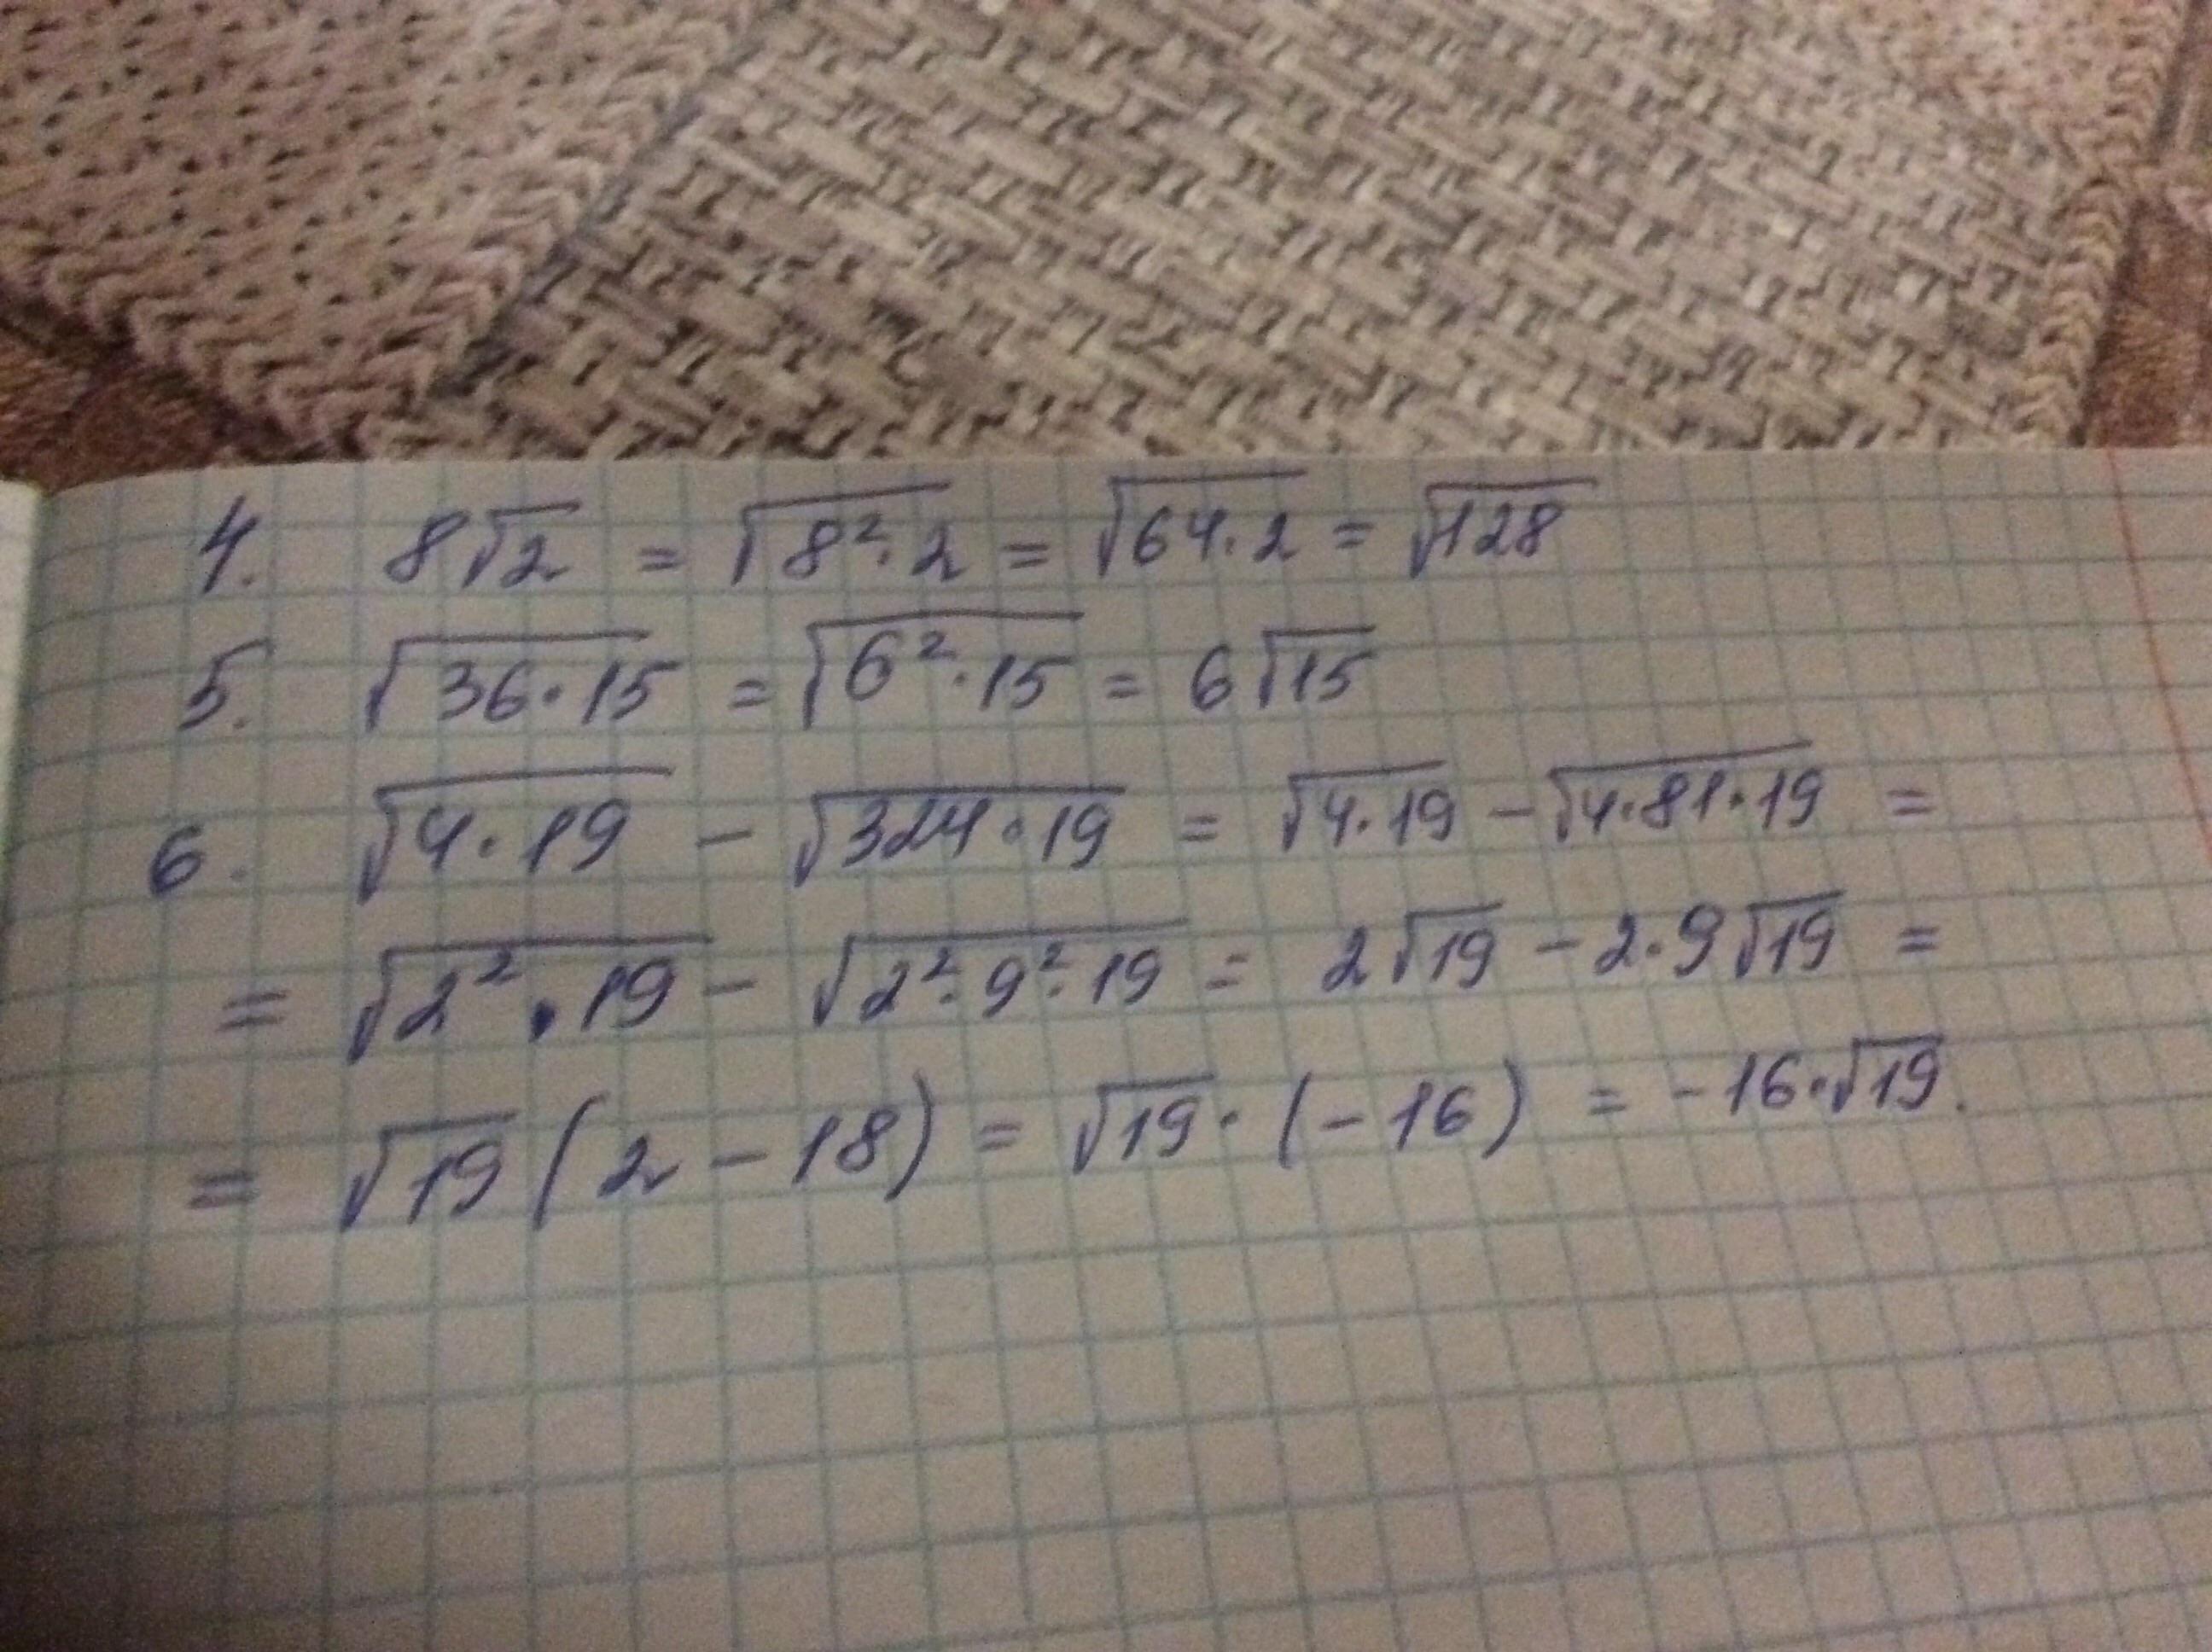 4. 8√2 = √8²·2 = √64·2 = √128
5. √36·15 = √6²·15 = 6√15
6. √4·19 - √324·19 = √4·19 - √4·81·19 =
= √2²·19 - √2²·9²·19 = 2√19 - 2·9√19 =
= √19 (2 - 18) = √19·(-16) = -16·√19.